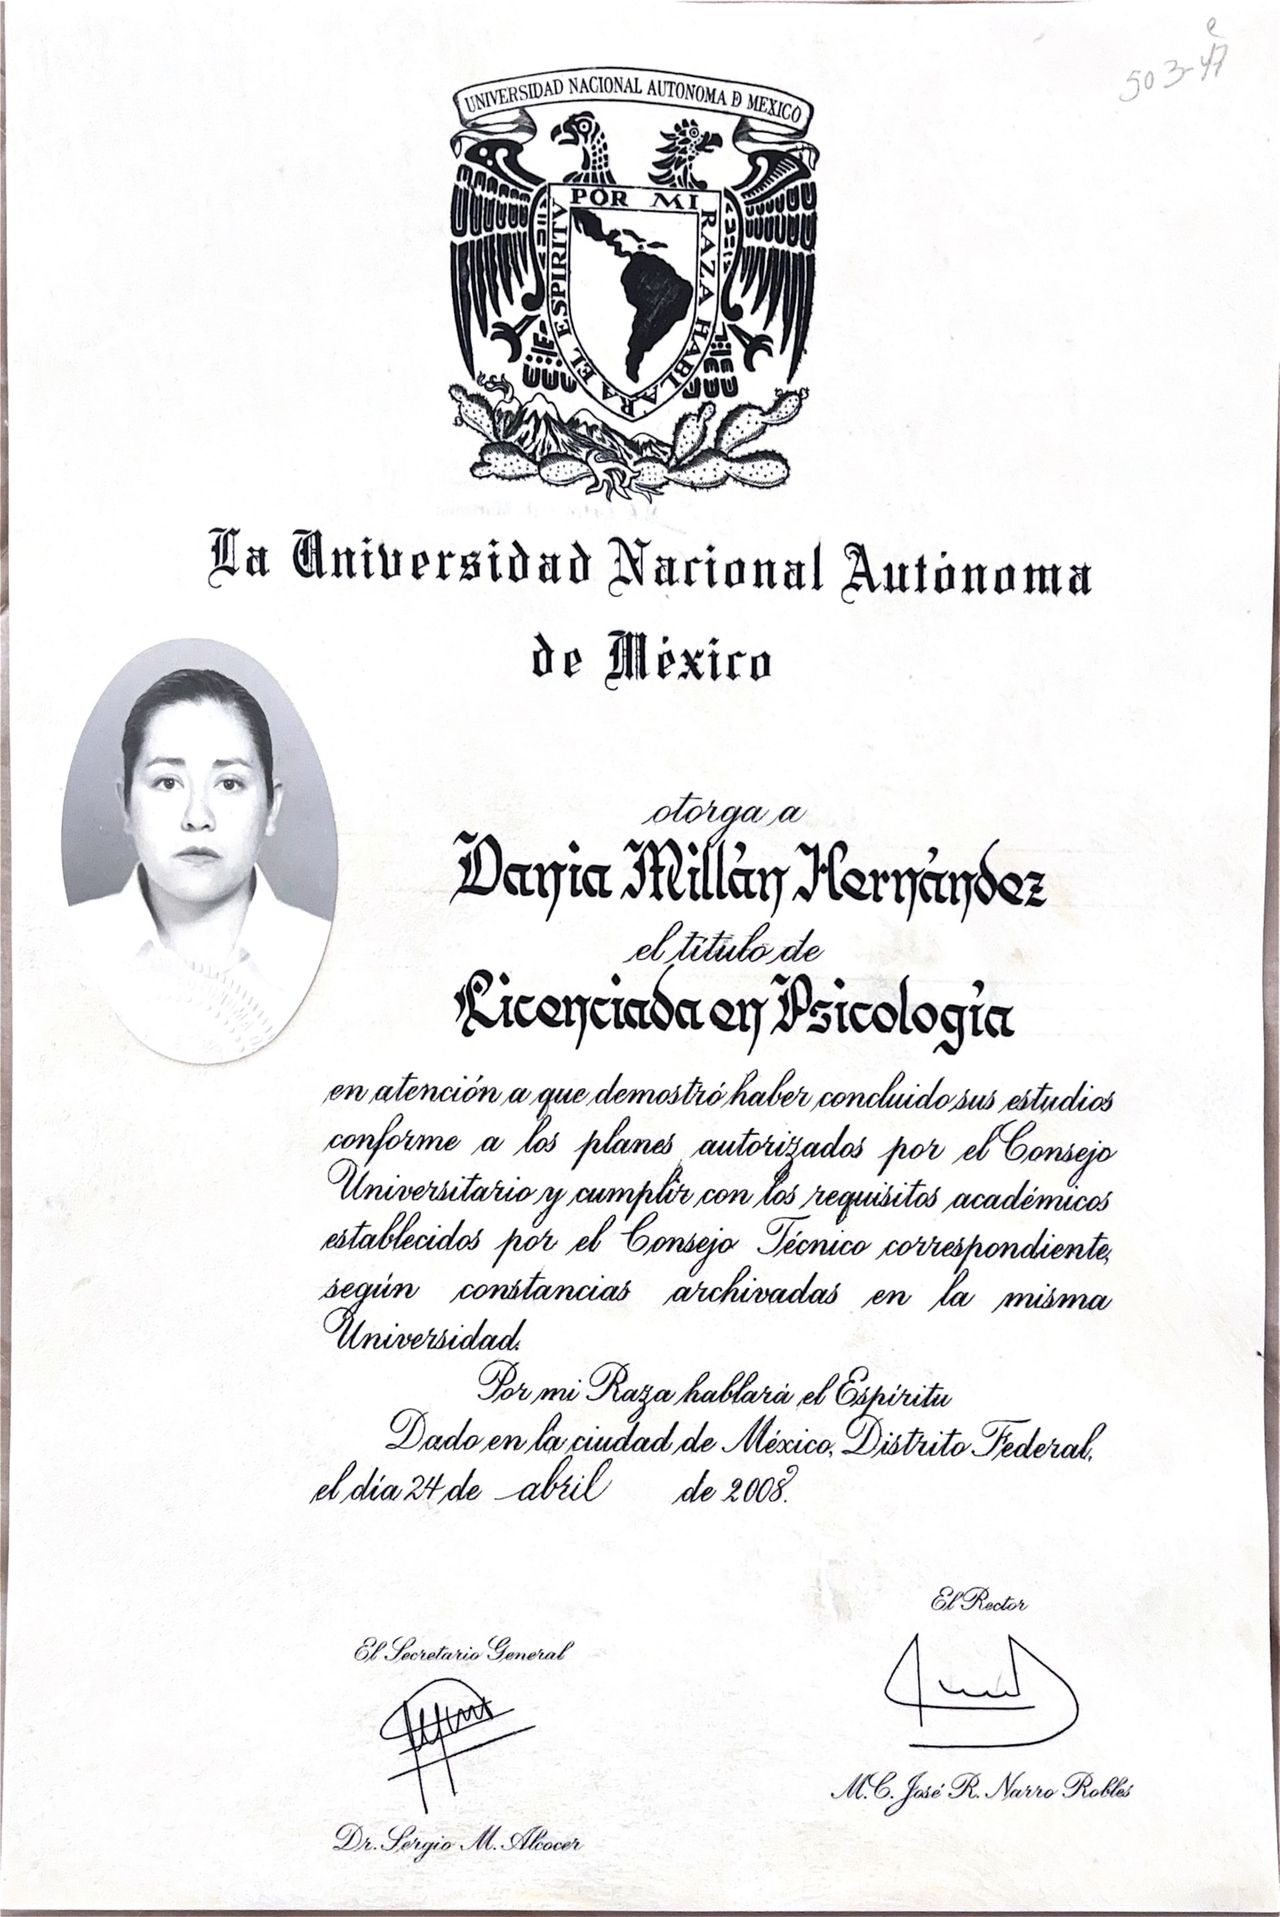 503-47
UNIVERSIDAD NACIONAL AUTONOMA D MEXICO
POR MI RAZA HABLARA EL ESPIRITV
La Universidad Nacional Autónoma
de México
otorga a
Dania Millán Hernández
el título de
Licenciada en Psicología
en atención a que demostró haber concluido sus estudios
conforme a los planes autorizados por el Consejo
Universitario y cumplir con los requisitos académicos
establecidos por el Consejo Técnico correspondiente,
según constancias archivadas en la misma
Universidad.
Por mi Raza hablará el Espíritu
Dado en la ciudad de México, Distrito Federal,
el día 24 de abril de 2008.
El Rector
El Secretario General
M.C. José R. Narro Robles
Dr. Sergio M. Alcocer